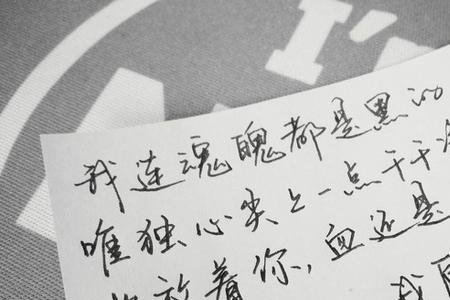 I'
我连魂魄都是黑的
唯独心尖上一点干干
放着你,血还是
我